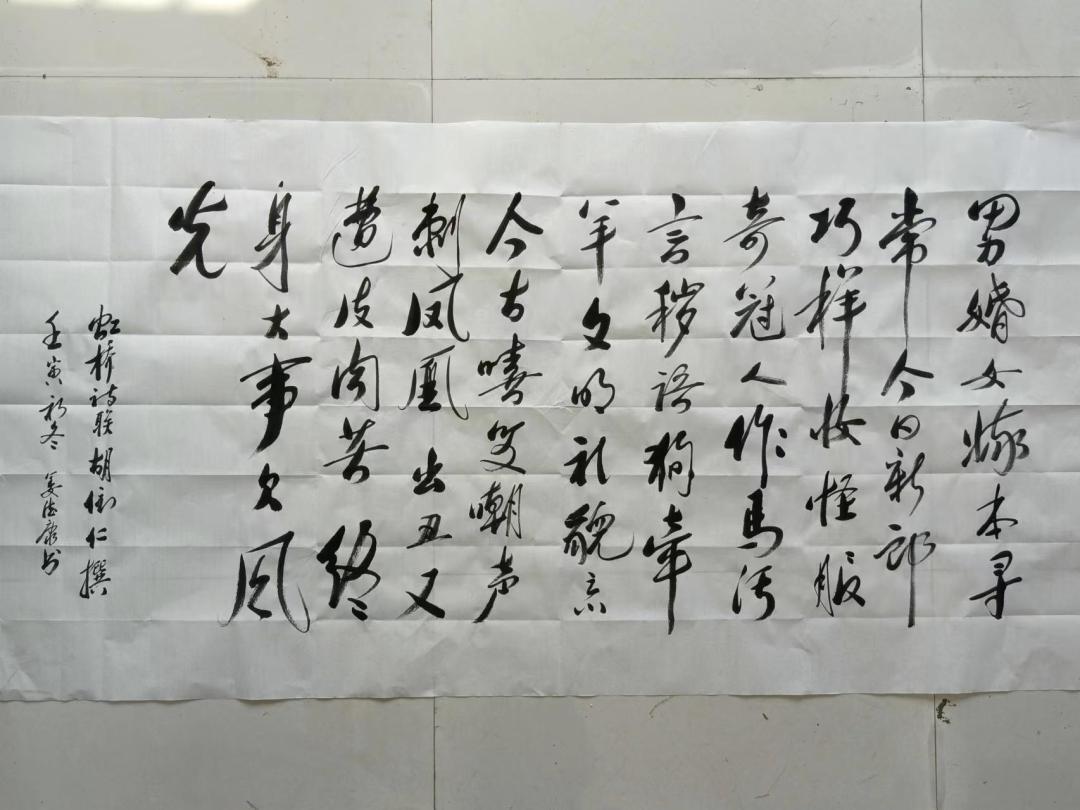 男婚女嫁本寻
常今日新郎
巧样妆怪服
奇冠人作马污
言秽语狗牵
羊文明礼貌忘
今古嘻笑嘲声
刺凤凰出丑又
遭皮肉苦终
身大事欠风
光
虹桥诗联胡仁撰
壬寅初冬姜书